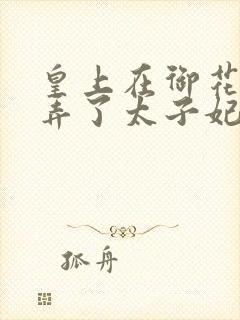 皇上在御花
弄了太子妃
孤舟